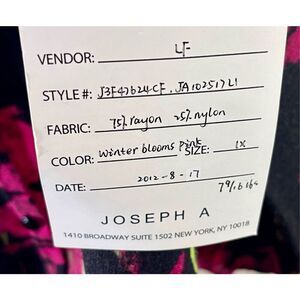 VENDOR: LF
STYLE#: J3F47624CF, JA102517L1
FABRIC: 75% rayon 25% nylon
COLOR: winter blooms pink SIZE: 1X
DATE: 2012-8-17
JOSEPH A
1410 BROADWAY SUITE 1502 NEW YORK, NY 10018